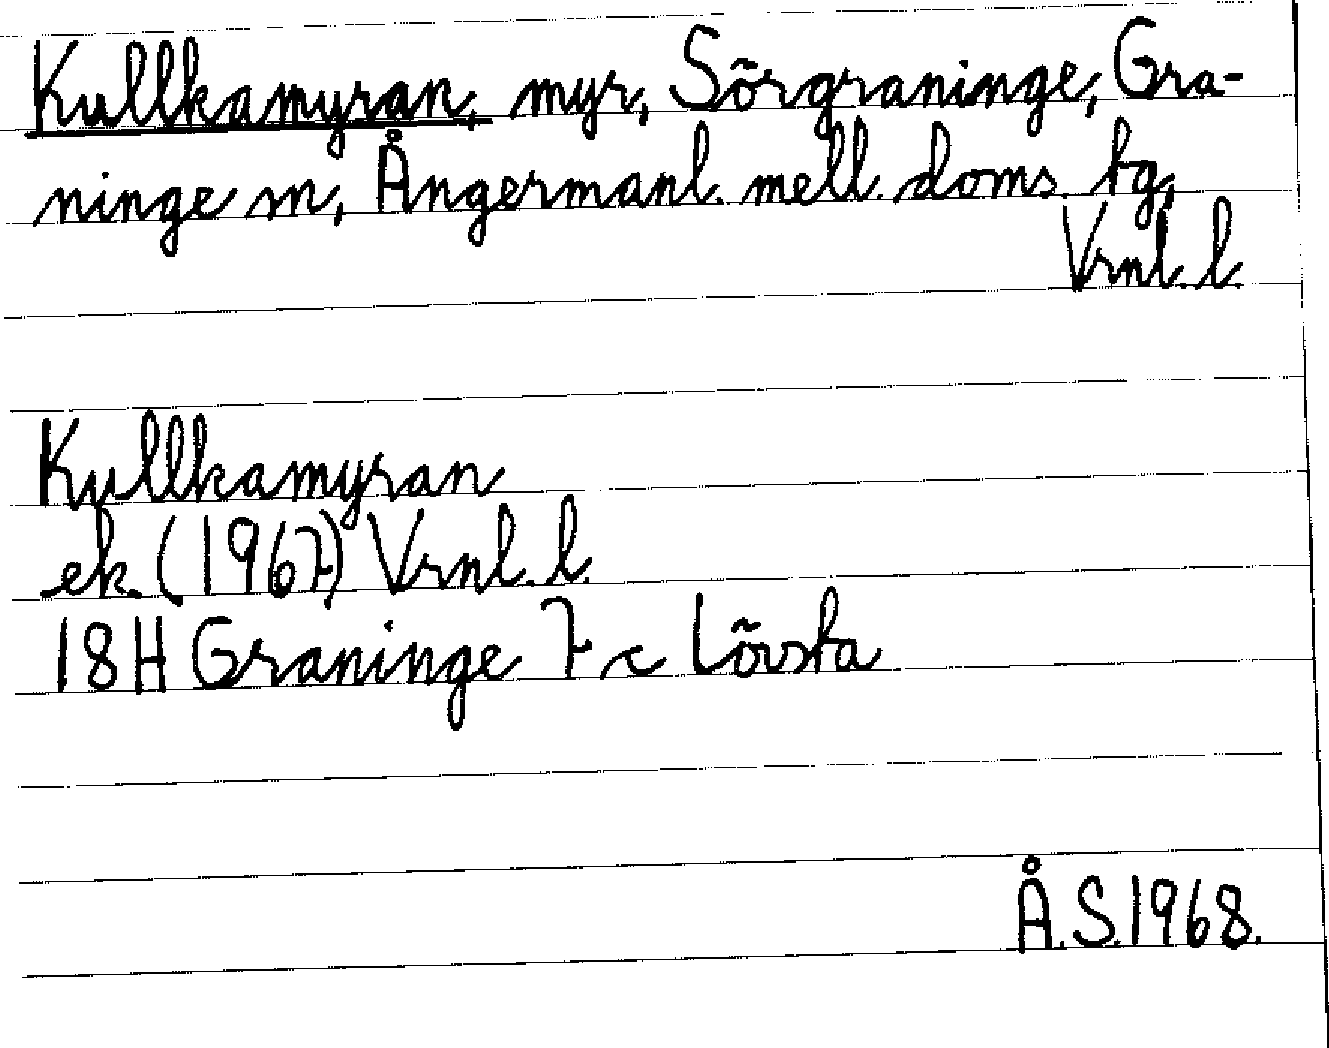 Kullkamyran, myr, Sörgraninge, Gra-
ninge sn, Ångermanl. mell. doms. tg,
Vrnl. l.
Kullkamyran
ek. (1967) Vrnl. l.
18H Graninge 7 c Lövsta
Å.S. 1968.